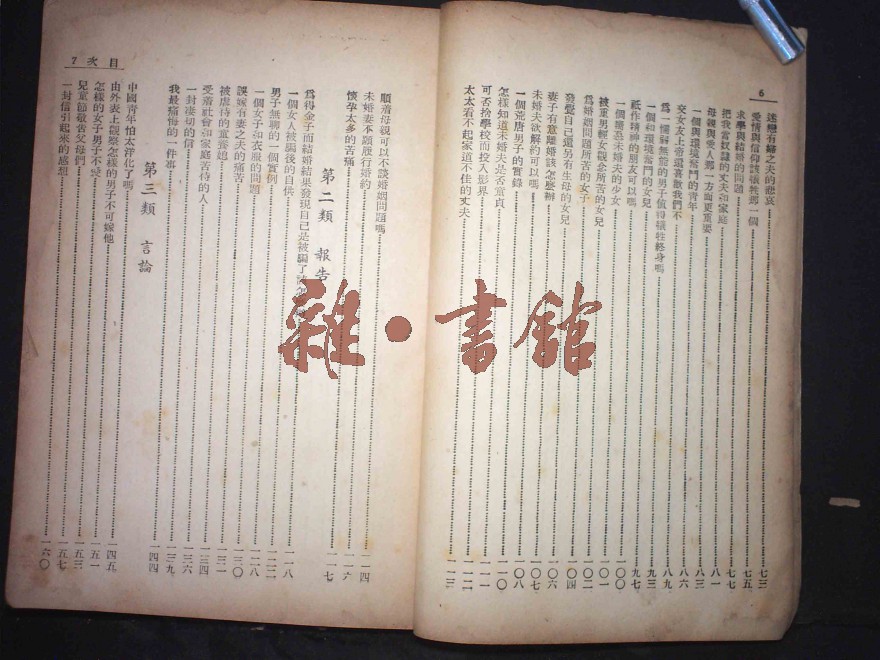 6
迷戀有婦之夫的悲哀……七三
愛情與信仰該犧牲那一個……七五
求學與結婚的問題……七七
把我當奴隸的丈夫和家庭……七七
母親與愛人那一方面更重要……八一
一個與環境奮鬥的青年……八三
交女友上帝還喜歡我們不……八六
爲一懦弱無能的男子值得犧牲終身嗎……八九
一個和環境奮鬥的女兒……九三
祇作精神的朋友可以嗎……九七
一個懷念未婚夫的少女……一〇〇
被重男輕女觀念所苦的女兒……一〇一
爲婚姻問題所苦的女子……一〇二
發覺自己還另有生母的女兒……一〇四
妻子有意離婚該怎麼辦……一〇六
未婚夫欲解約可以嗎……一〇七
一個荒唐男子的實錄……一〇八
怎樣知道未婚夫是否童貞……一一〇
可否捨學校而投入影界……一一一
太太看不起家道不佳的丈夫……一一二
目次 7
順着母親可以不談婚姻問題嗎……一一四
未婚妻不願履行婚約……一一六
懷孕太多的苦痛……一一七
第二類 報告
爲得金子而結婚結果發現自己是被騙了
一個女人被騙後的自供……一一八
男子無聊的一個實例……一二二
一個女子和衣服的問題……一二八
誤嫁有妻之夫的痛苦……一三〇
被虐待的童養媳……一三一
受着社會和家庭苦待的人……一三四
一封淒切的信……一三六
我最痛悔的一件事……一三九
一四四
第三類 言論
中國青年怕太洋化了嗎……一四五
由外表上觀察怎樣的男子不可嫁他……一五一
怎樣的女子男子不愛……一五三
兒童節敬告父母們……一五七
一封信引起來的感想……一六〇
雜·書館